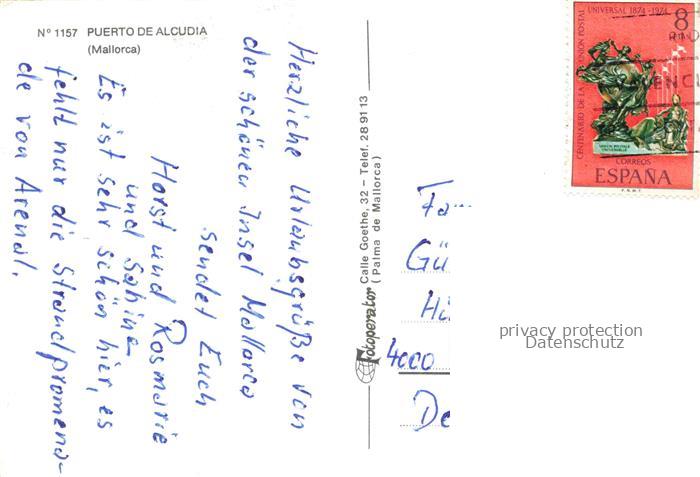 Nº 1157 PUERTO DE ALCUDIA
(Mallorca)
Herzliche Urlaubsgrüße von
der schönen Insel Mallorca
sendet Euch
Horst und Rosmarie
und Sabine
Es ist sehr schön hier, es
fehlt nur die Strandpromena-
de von Arenal.
Fotoperator Calle Goethe, 32 – Telef. 28 91 13
(Palma de Mallorca)
CENTENARIO DE LA UNION POSTAL UNIVERSAL 1874-1974
8
PTAS
UNION POSTALE
UNIVERSELLE
CORREOS
ESPAÑA
F.N.M.T.
Fa
Gü
4000
De
privacy protection
Datenschutz